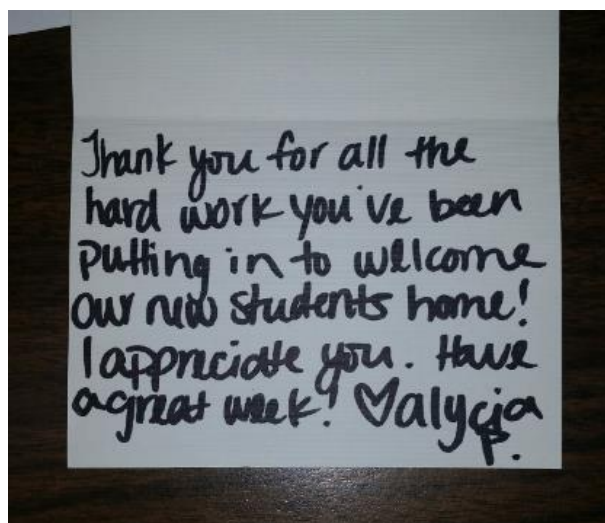 Thank you for all the
hard work you've been
putting in to welcome
our new students home!
I appreciate you. Have
a great week! ♡alycia
P.